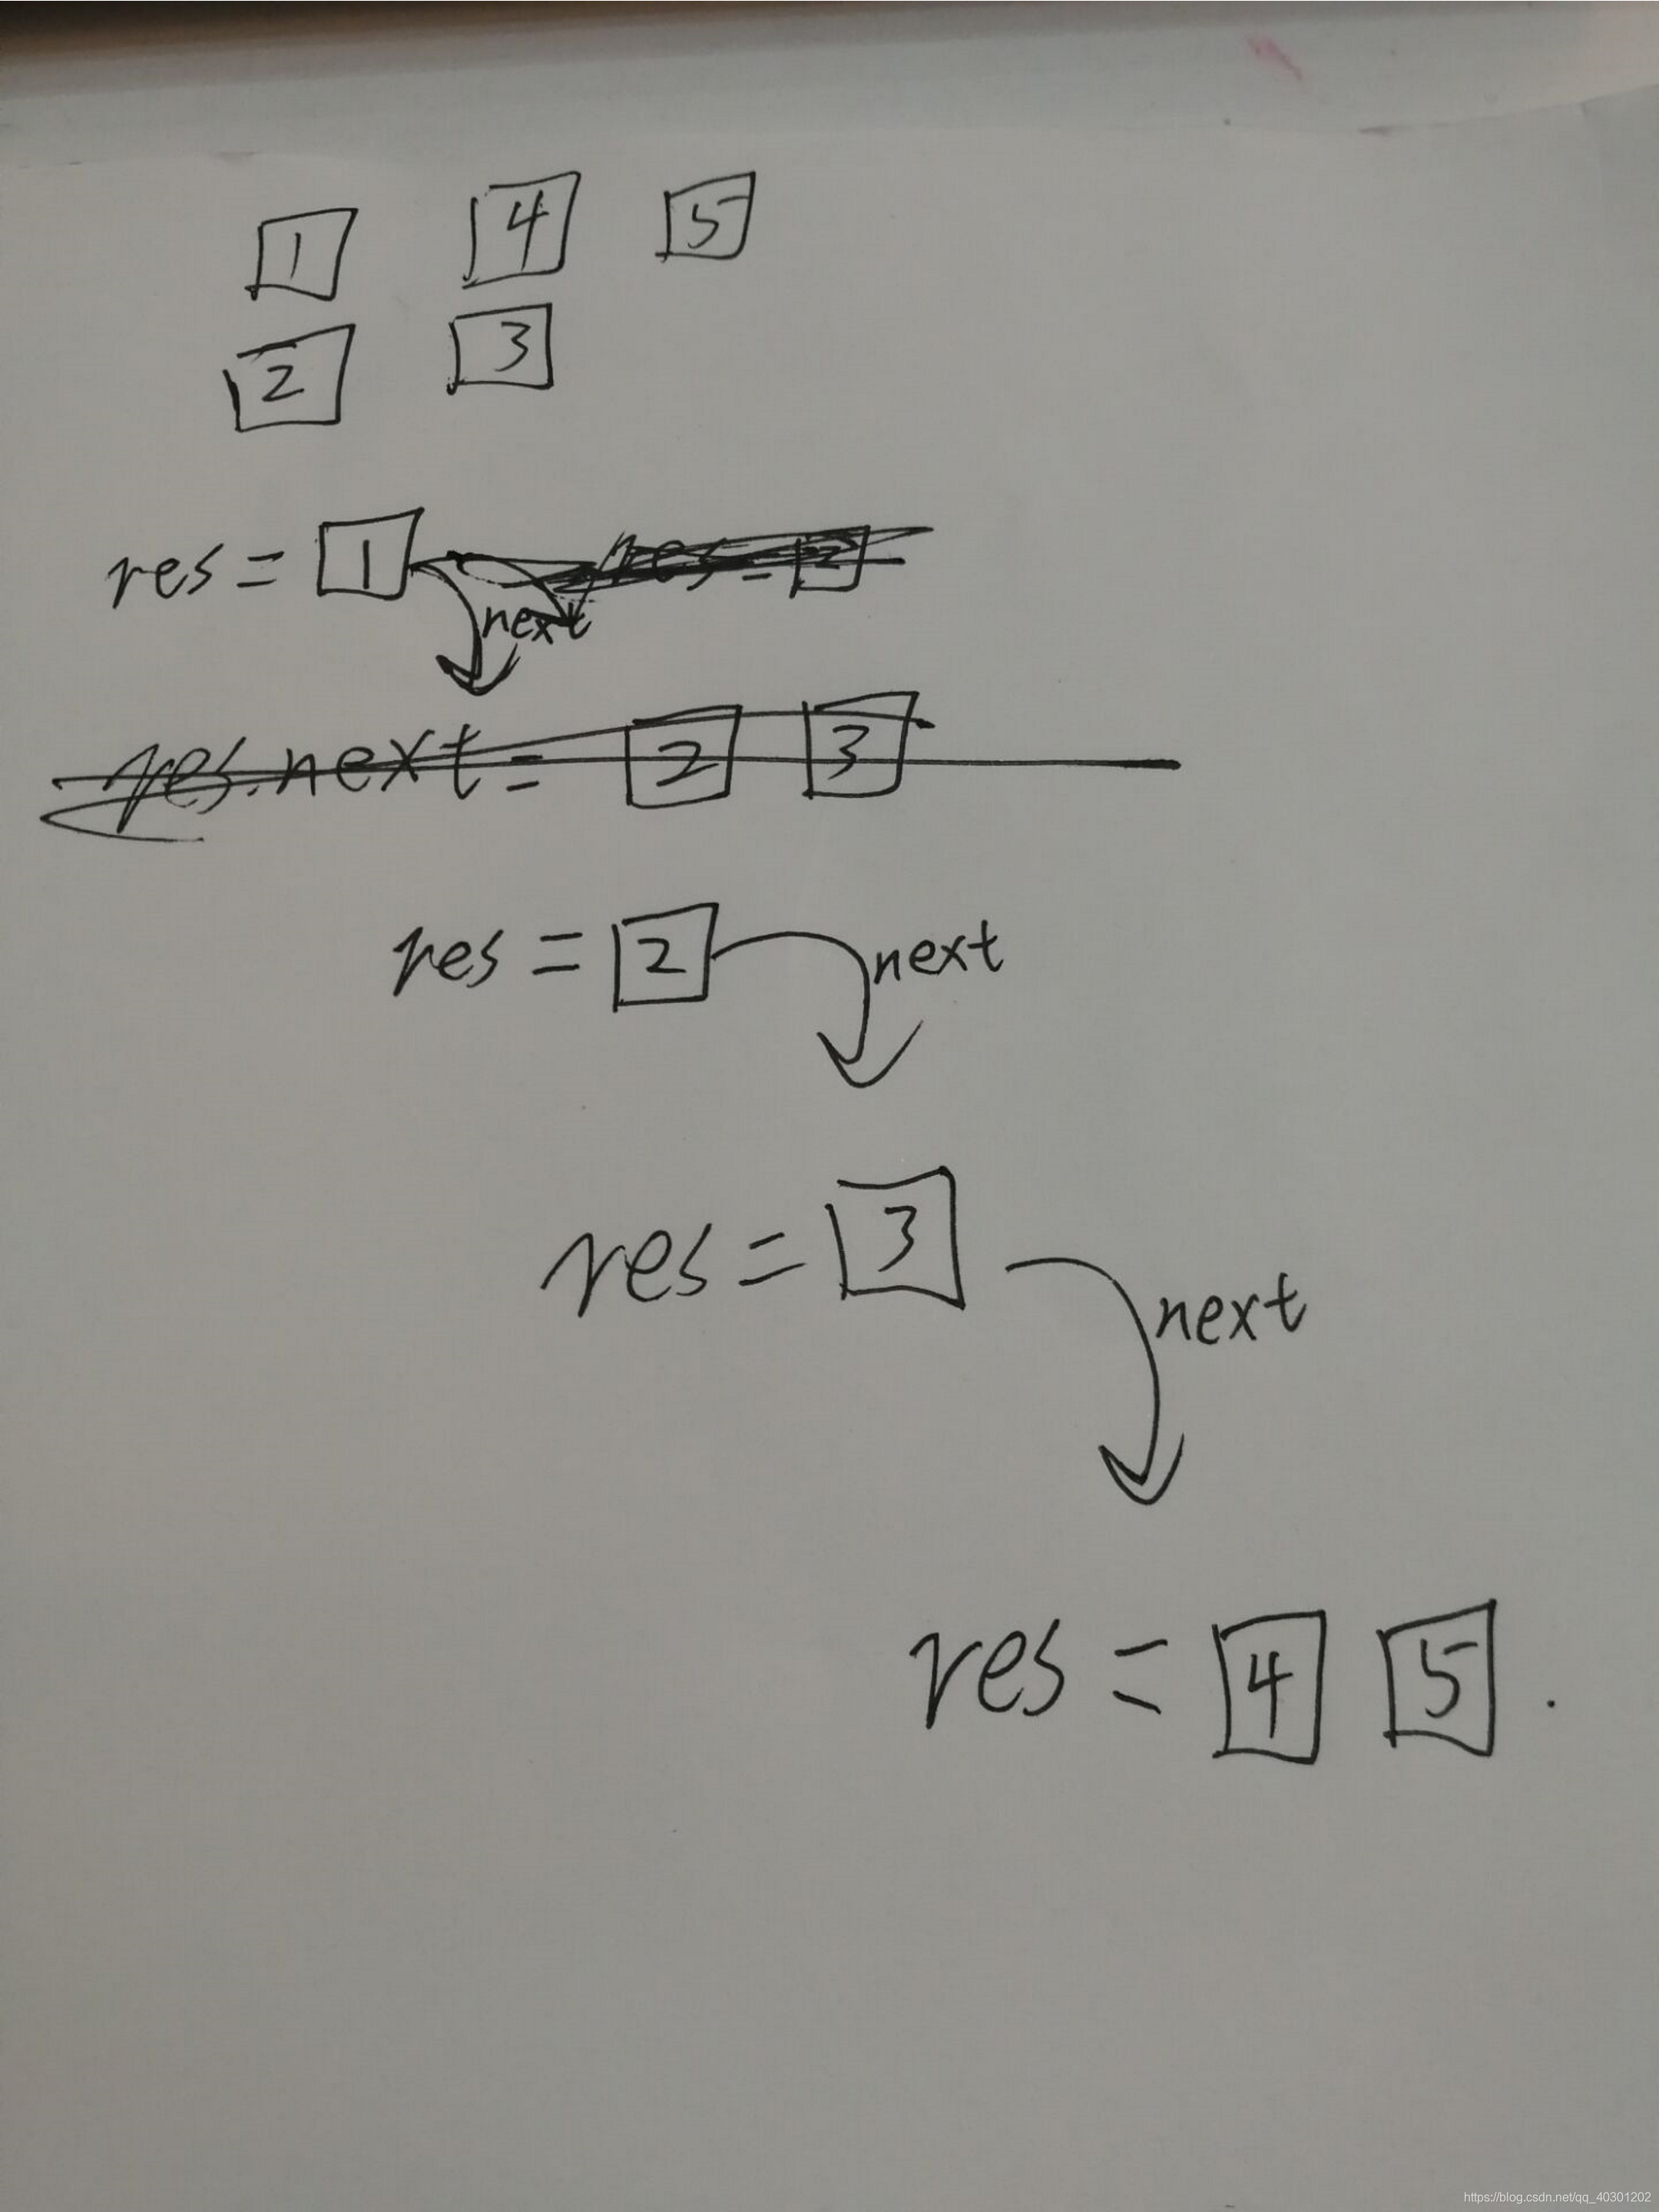 1 4 5
2 3
res = 1 res = 2
next
res.next = 2 3
res = 2 next
res = 3
next
res = 4 5 .
https://blog.csdn.net/qq_40301202